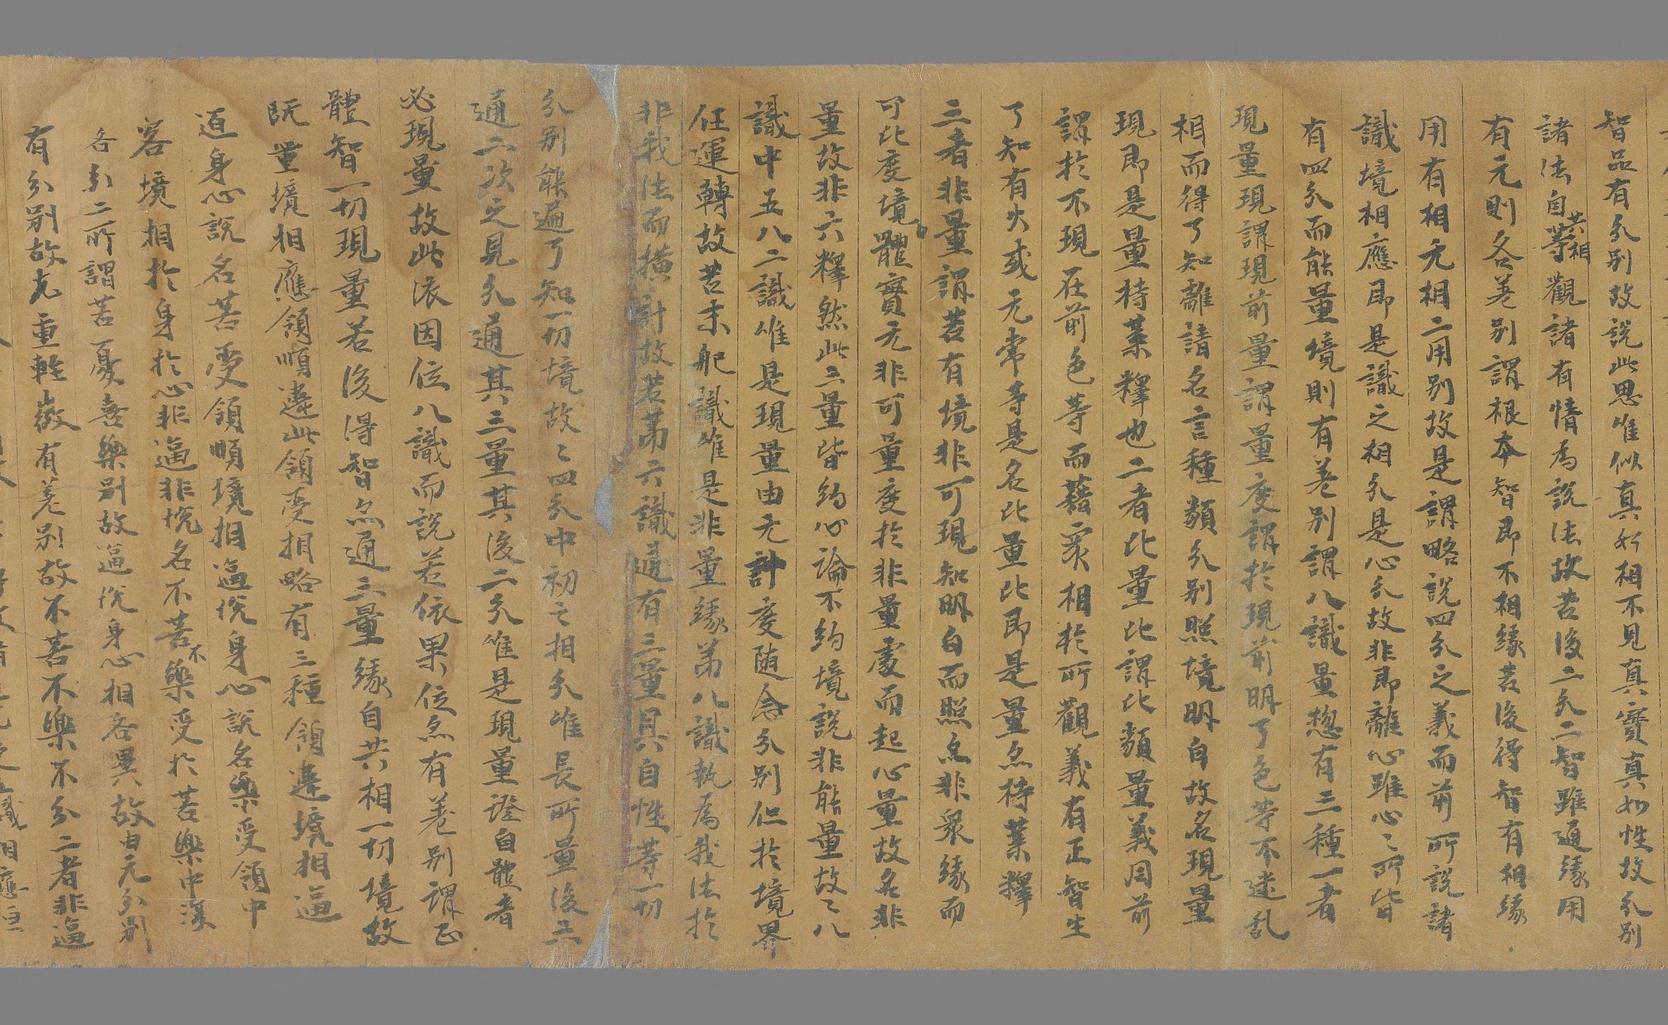 智品有分别故說此思惟似真如相不見真實真如性故分别
諸法自共相等觀諸有情為說法故若後二分二智雖通緣用
有无則各差别謂根本智即不相緣若後得智有相緣
用有相无相二用别故是謂略說四分之義而前所說諸
識境相應即是識之相分是心分故非即離心雖心〻所皆
有四分而能量境則有差别謂八識量惣有三種一者
現量現謂現前量謂量度謂於現前明了色等不迷乱
相而得了知離諸名言種類分别照境明白故名現量
現即是量持業釋也二者比量比謂比類量義同前
謂於不現在前色等而藉衆相於所觀義有正智生
了知有火或无常等是名比量比即是量亦持業釋
三者非量謂若有境非可現知明白而照亦非衆緣而
可比度境體實无非可量度於非量處而起心量故名非
量故非六釋然此三量皆約心論不約境說非能量故〻八
識中五八二識唯是現量由无計度随念分别但於境界
任運轉故若末那識唯是非量緣第八識執為我法於
非我法而横計故若第六識通有三量具自性等一切
分别能遍了知一切境故〻四分中初之相分唯是所量後三
通二次之見分通其三量其後二分唯是現量證自體者
必現量故此依因位八識而說若依果位亦有差别謂正
體智一切現量若後得智亦通三量緣自共相一切境故
既量境相應領順違此領受相略有三種領違境相逼
迫身心說名苦受領順境相適悦身心說名樂受領中
容境相於身於心非逼非悦名不苦不樂受於苦樂中復
各分二所謂苦憂喜樂别故逼悦身心相各異故由无分别
有分别故尤重輕微有差别故不苦不樂不分二者非逼